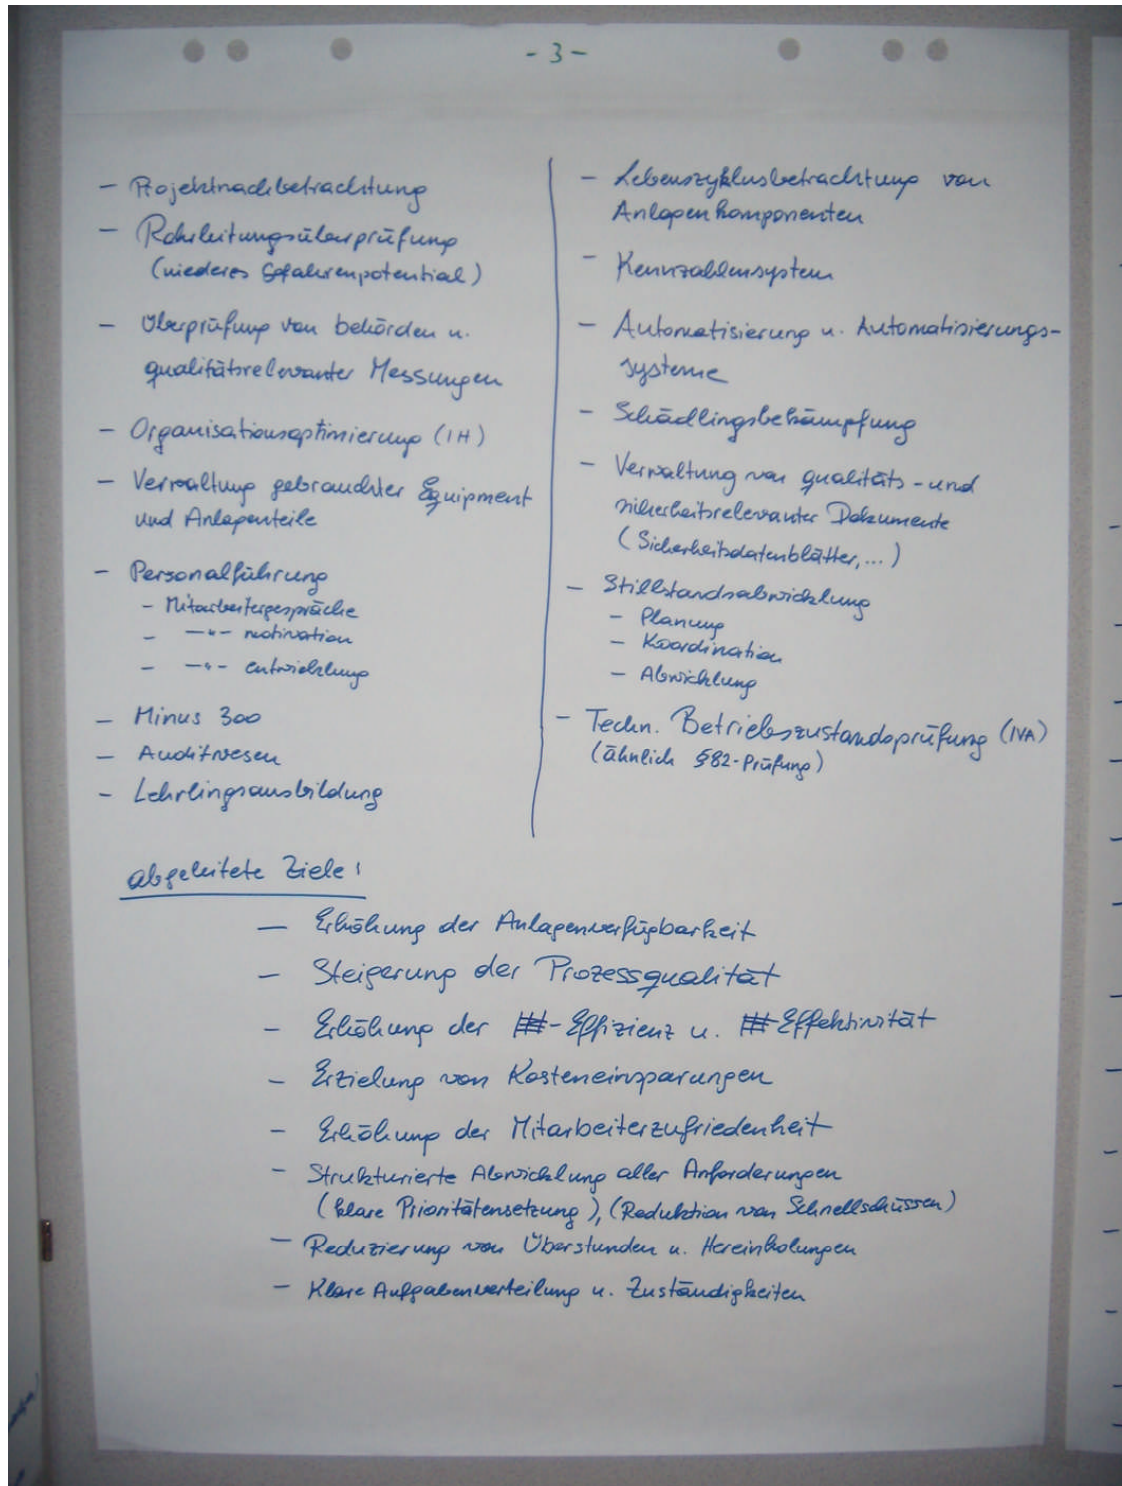 - 3 -
- Projektnachbetrachtung
- Rohrleitungsüberprüfung
(niederes Gefahrenpotential)
- Überprüfung von behörden u.
qualitätsrelevanter Messungen
- Organisationsoptimierung (IH)
- Verwaltung gebrauchter Equipment
und Anlagenteile
- Personalführung
- Mitarbeitergespräche
- —"— motivation
- —"— entwicklung
- Minus 300
- Auditwesen
- Lehrlingsausbildung
- Lebenszyklusbetrachtung von
Anlagenkomponenten
- Kennzahlensystem
- Automatisierung u. Automatisierungs-
systeme
- Schädlingsbekämpfung
- Verwaltung von qualitäts- und
sicherheitsrelevanter Dokumente
(Sicherheitsdatenblätter, ...)
- Stillstandsabwicklung
- Planung
- Koordination
- Abwicklung
- Techn. Betriebszustandsprüfung (IVA)
(ähnlich §82-Prüfung)
abgeleitete Ziele:
- Erhöhung der Anlagenverfügbarkeit
- Steigerung der Prozessqualität
- Erhöhung der -Effizienz u. Effektivität
- Erzielung von Kosteneinsparungen
- Erhöhung der Mitarbeiterzufriedenheit
- Strukturierte Abwicklung aller Anforderungen
(klare Prioritätensetzung), (Reduktion von Schnellschüssen)
- Reduzierung von Überstunden u. Hereinholungen
- Klare Aufgabenverteilung u. Zuständigkeiten